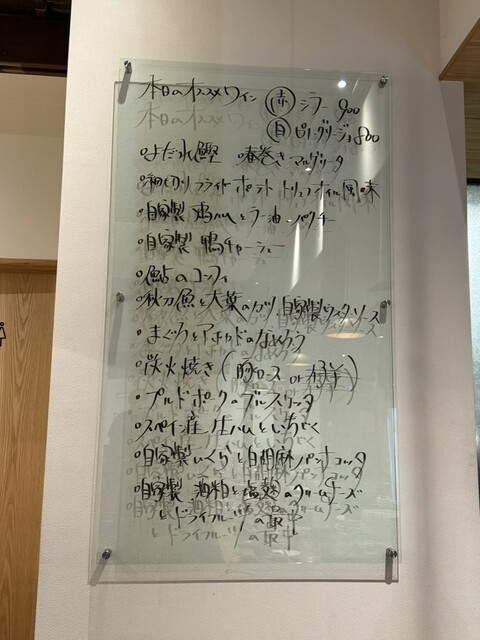 本日のオススメワイン (赤) シラー 900
(白) ピノグリージョ 800
・よだれ鰹 ・春巻き マルゲリータ
・細切りフライドポテト トリュフオイル風味
・自家製 鶏ハムとラー油パクチー
・自家製 鴨チャーシュー
・鮎のコンフィ
・秋刀魚と大葉のカツ、自家製ウスターソース
・まぐろとアボカドのなめろう
・炭火焼き (豚ロース or 仔羊)
・プルドポークのブルスケッタ
・スペイン産 生ハムといちぢく
・自家製いくらと白胡麻パンナコッタ
・自家製 酒粕と塩麹のクリームチーズ
とドライフルーツの最中